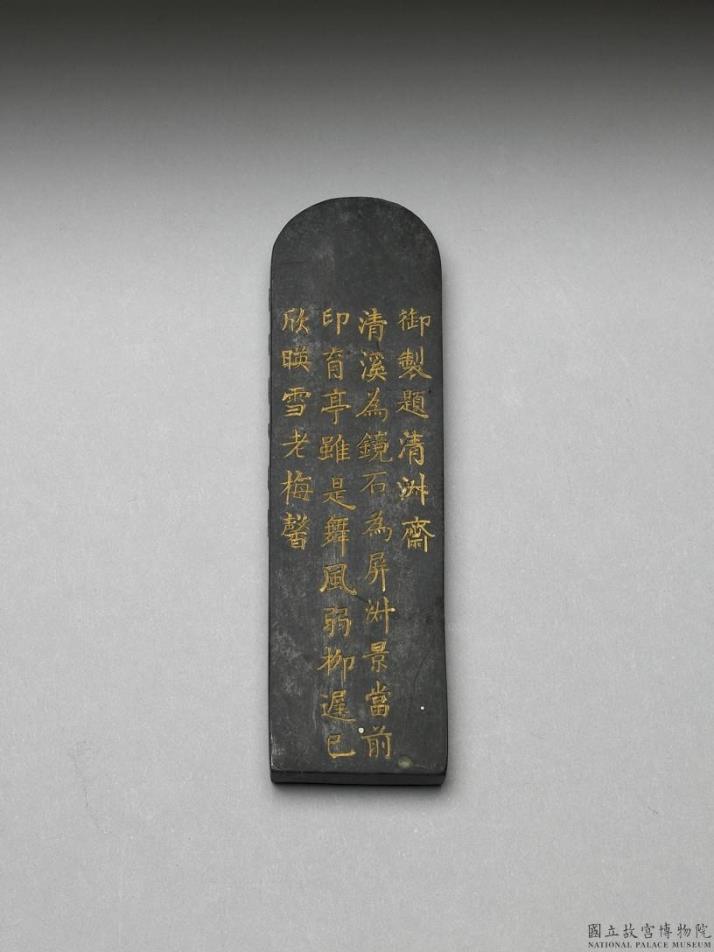 御製題清泚齋
清溪為鏡石為屏泚景當前
印育亭雖是舞風弱柳遲已
欣暎雪老梅馨
國立故宮博物院
NATIONAL PALACE MUSEUM